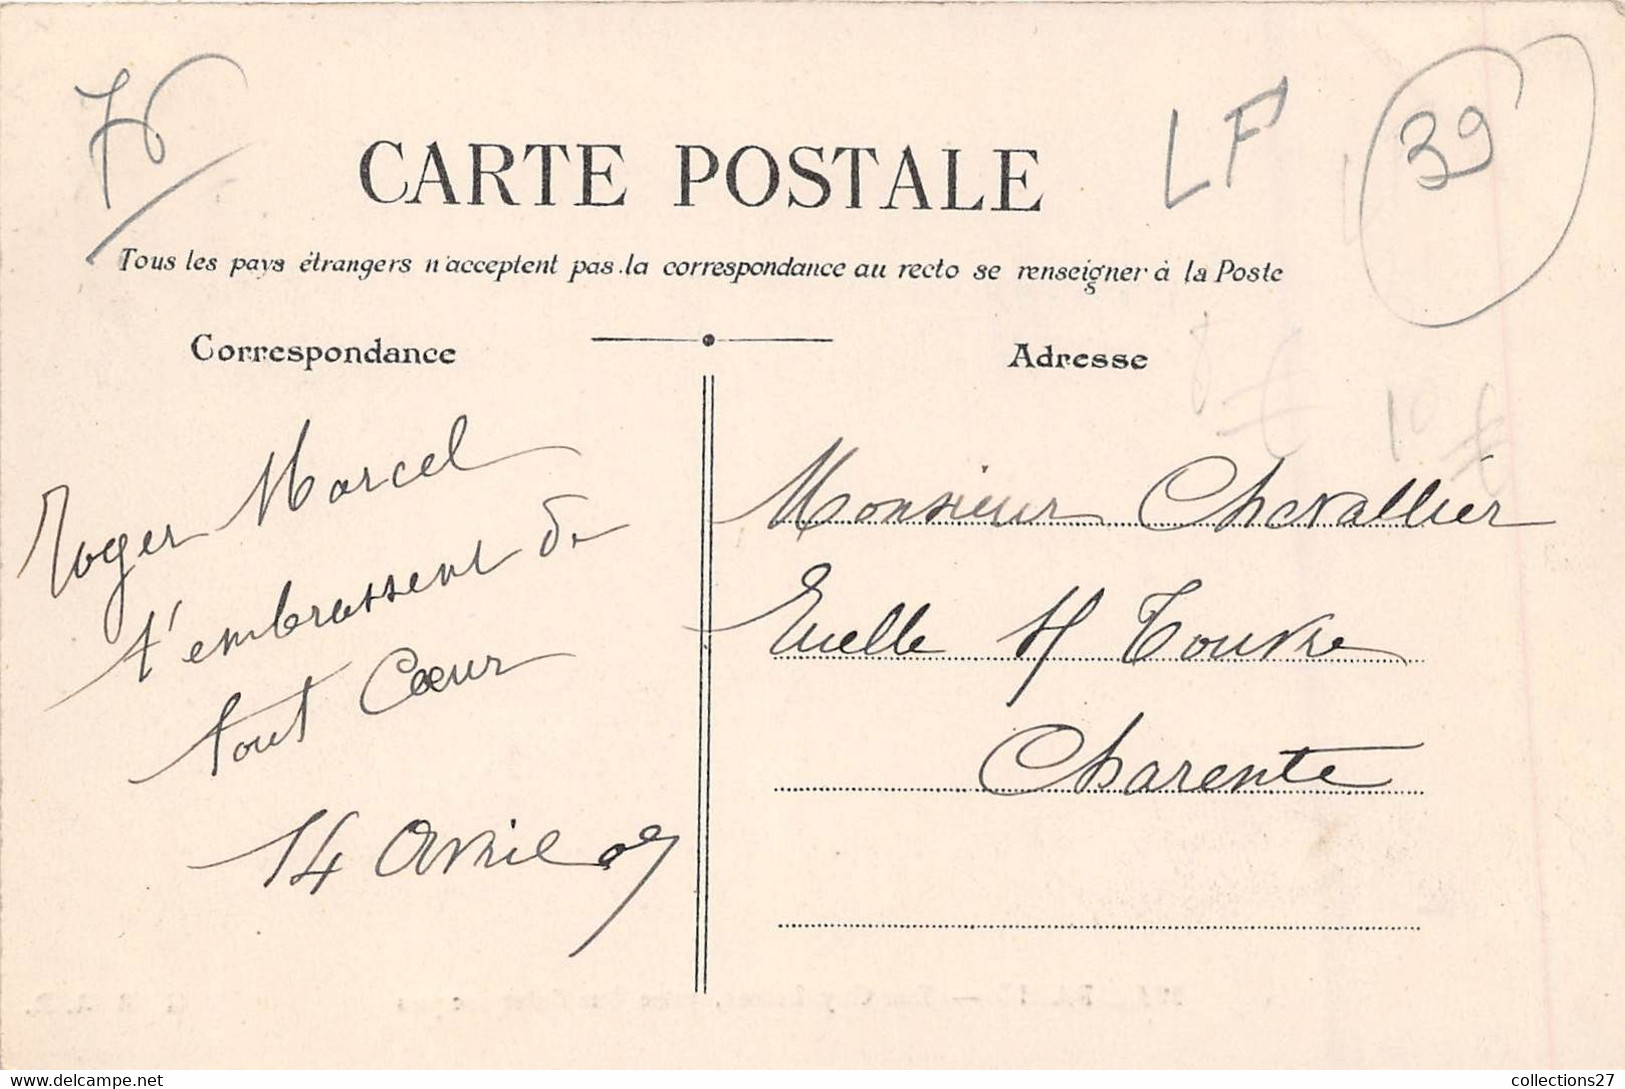 76
LF
39
CARTE POSTALE
Tous les pays étrangers n'acceptent pas la correspondance au recto se renseigner à la Poste
Correspondance
Adresse
10 €
Roger Marcel
t'embrassent de
tout Cœur
14 Avril 07
Monsieur Chevallier
Ruelle s/ Touvre
Charente
collections27